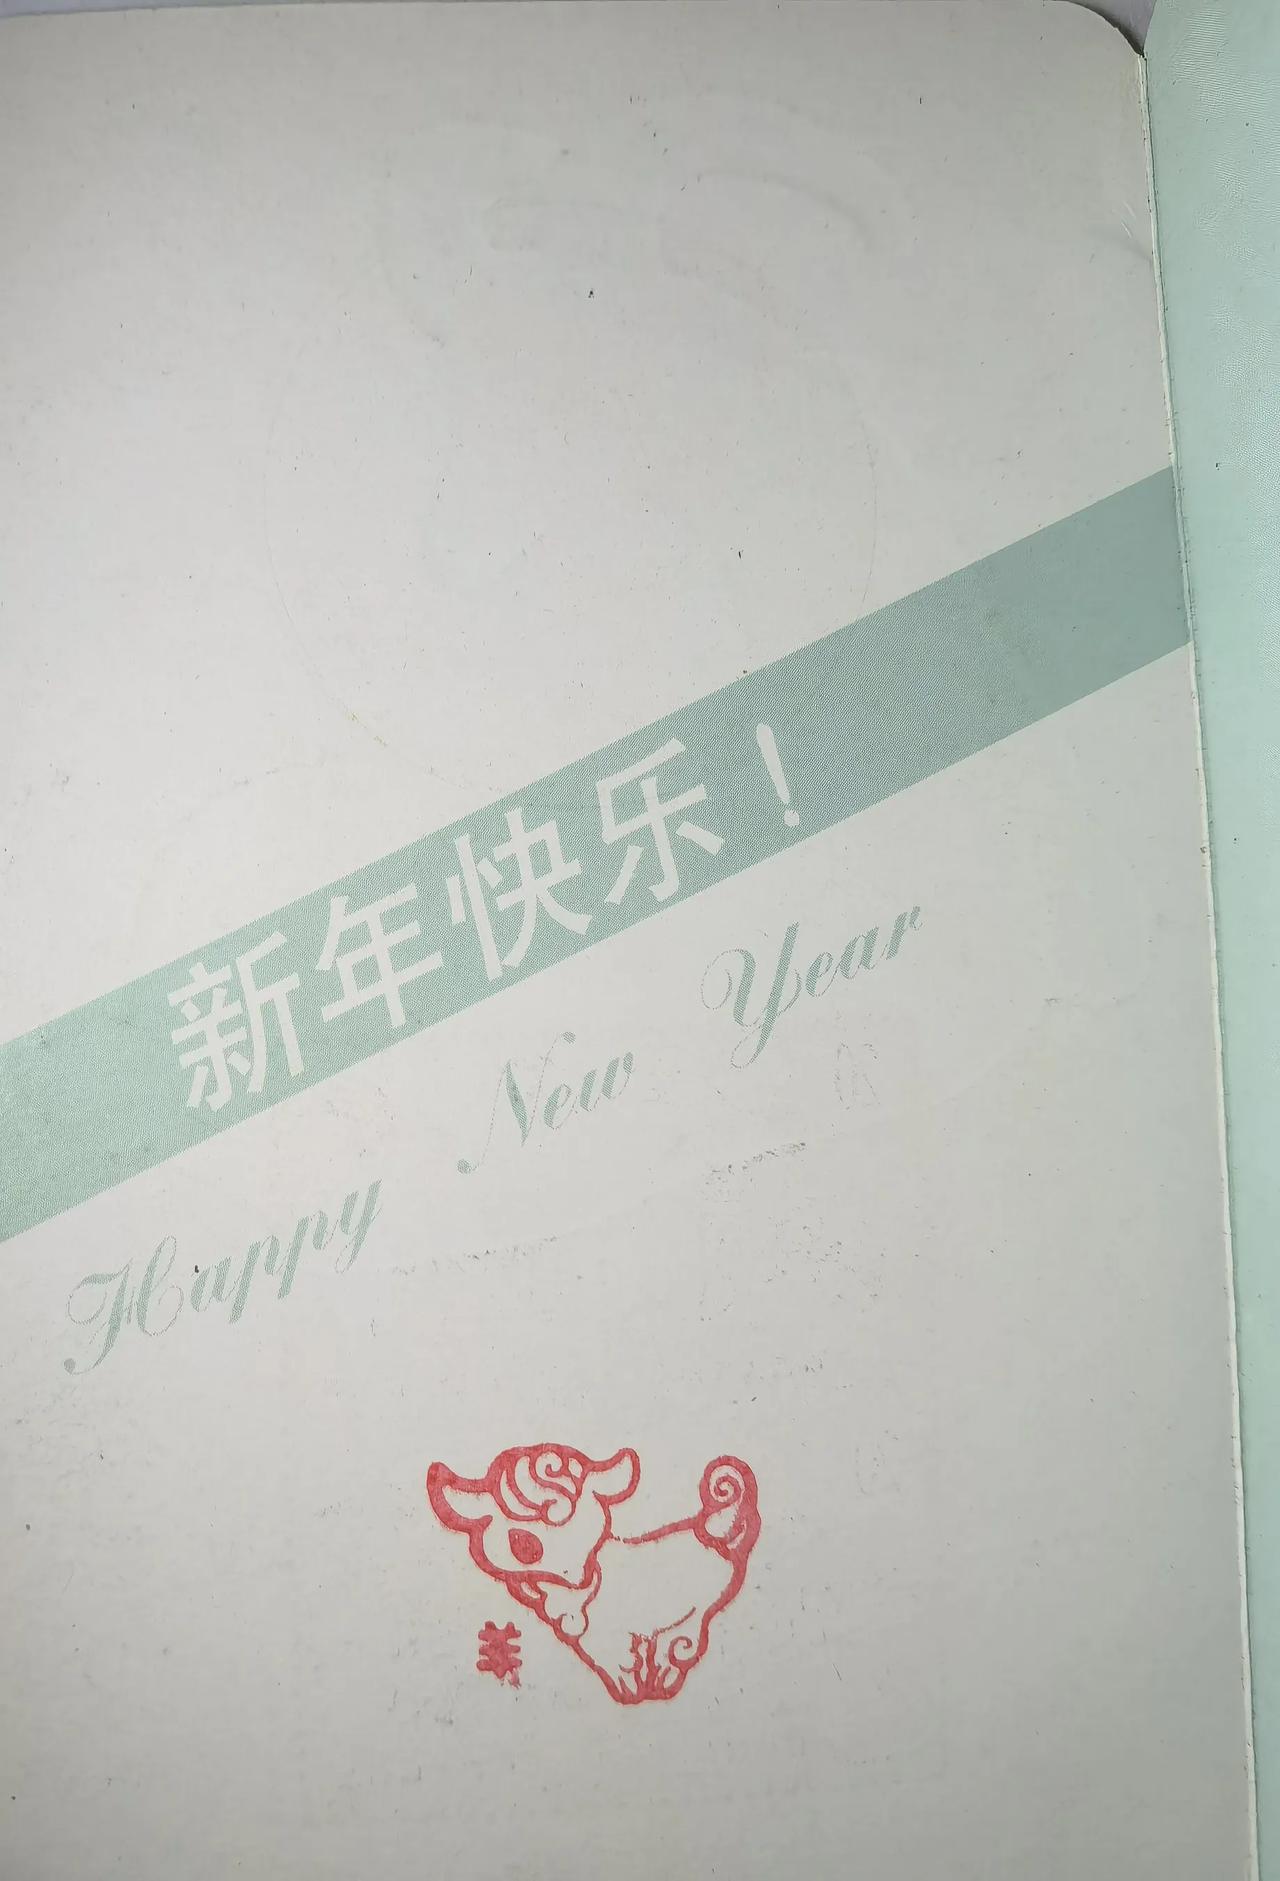 新年快乐！
Happy New Year